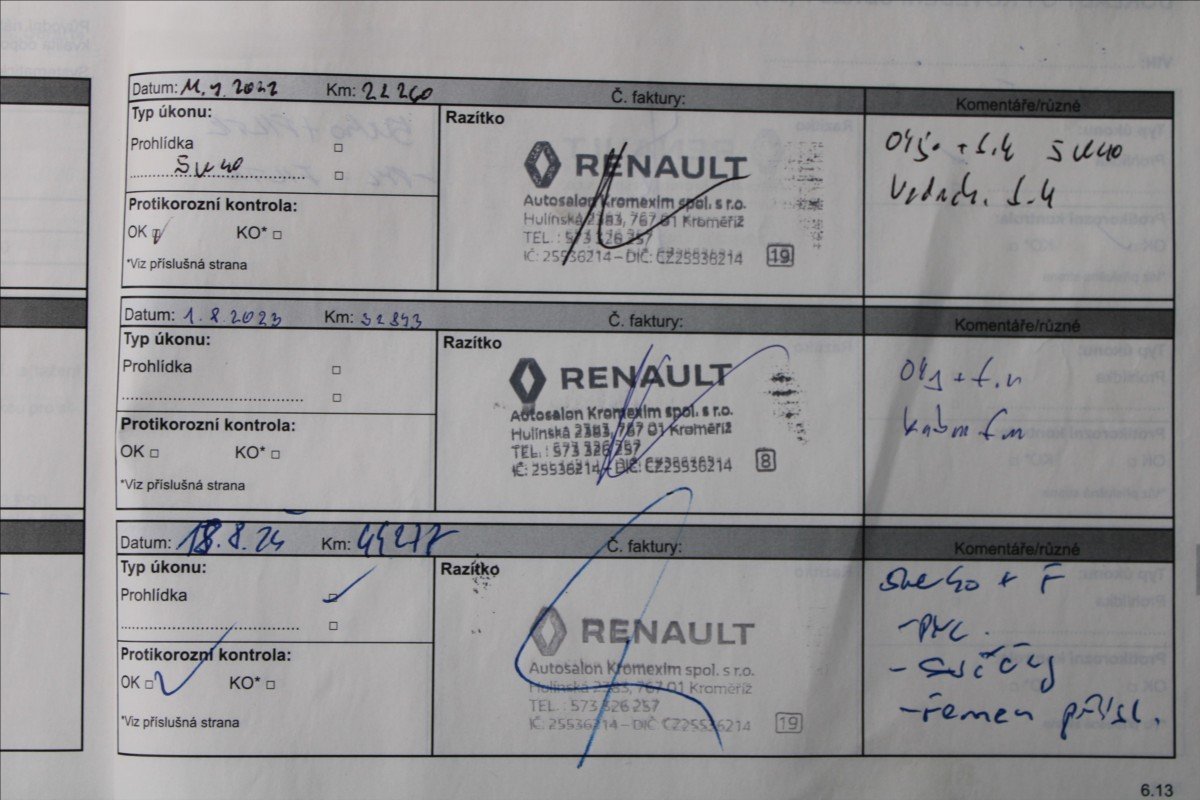 Datum: 11.7.2022 Km: 22260 Č. faktury: Komentáře/různé
Typ úkonu:
Prohlídka
Protikorozní kontrola:
OK KO*
*Viz příslušná strana
Razítko
RENAULT
Autosalon Kromexim spol. s r.o.
Hulínská 2383, 767 01 Kroměříž
TEL. : 573 326 257
IČ: 25536214 – DIČ: CZ25536214 19
Datum: 1.8.2023 Km: 32893 Č. faktury: Komentáře/různé
Typ úkonu:
Prohlídka
Protikorozní kontrola:
OK KO*
*Viz příslušná strana
Razítko
RENAULT
Autosalon Kromexim spol. s r.o.
Hulínská 2383, 767 01 Kroměříž
TEL. : 573 326 257
IČ: 25536214 – DIČ: CZ25536214 8
Datum: 18.8.24 Km: 44277 Č. faktury: Komentáře/různé
Typ úkonu:
Prohlídka
Protikorozní kontrola:
OK KO*
*Viz příslušná strana
Razítko
RENAULT
Autosalon Kromexim spol. s r.o.
Hulínská 2383, 767 01 Kroměříž
TEL. : 573 326 257
IČ: 25536214 – DIČ: CZ25536214 19
+ F
- svíčky
- řemen přísl.
6.13